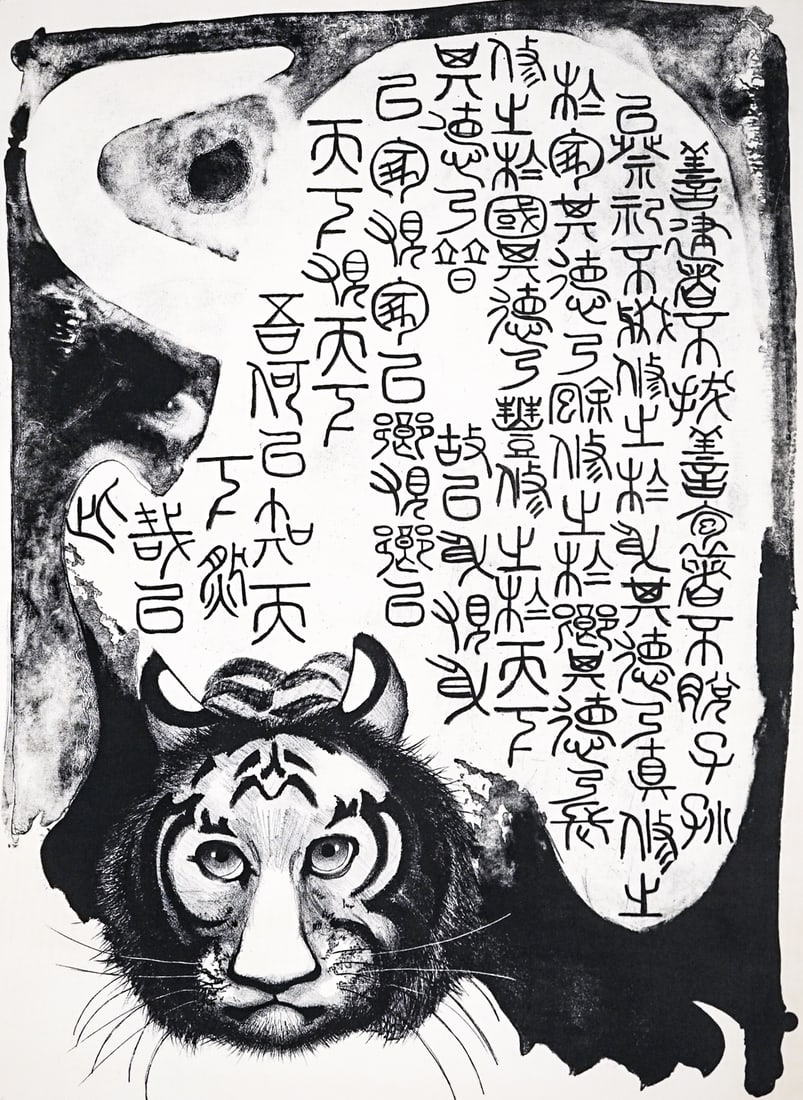 善建者不拔善抱者不脫子孫
以祭祀不輟修之於身其德乃真修之
於家其德乃餘修之於鄉其德乃長
修之於國其德乃豐修之於天下
其德乃普
故以身觀身
以家觀家以鄉觀鄉以
天下觀天下
吾何以知天
下然
哉以
此